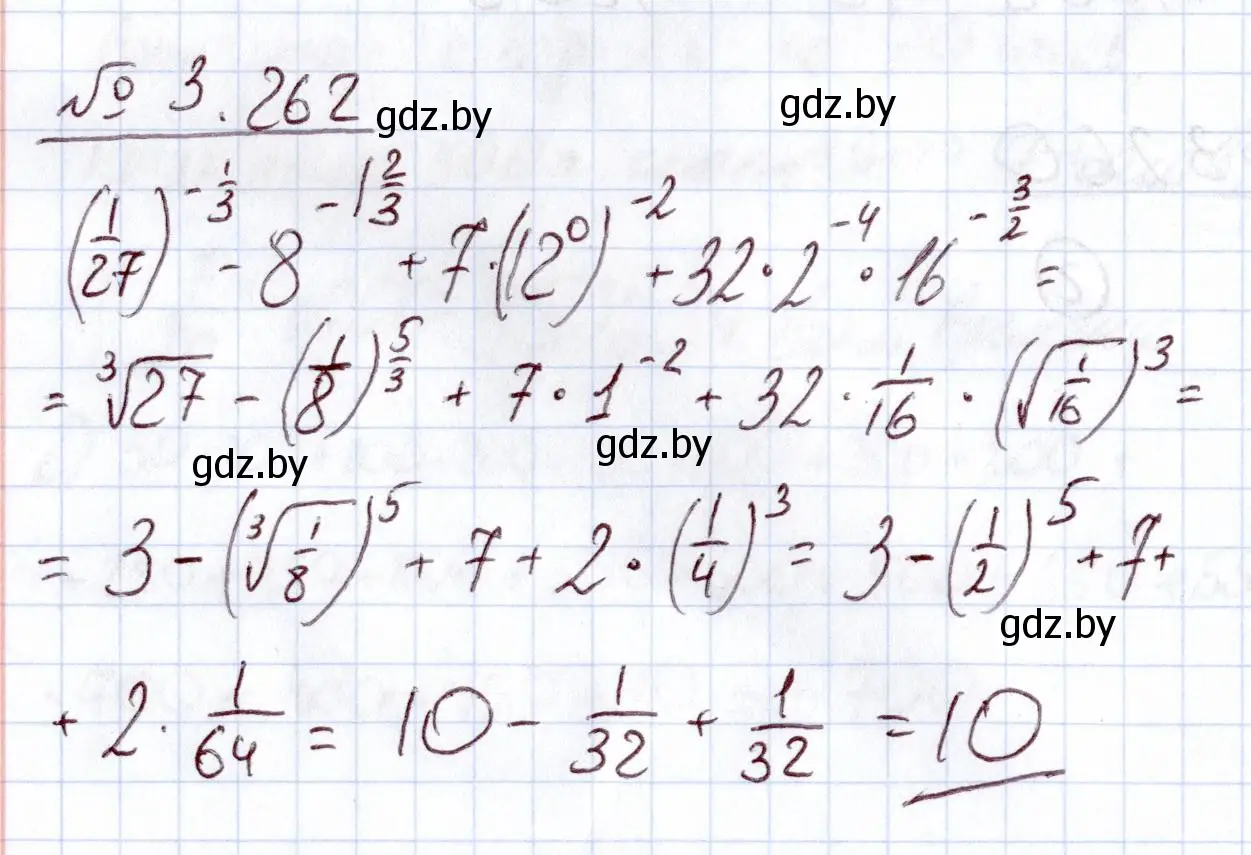 № 3.262 gdz.by gdz.by
(1/27)^(-1/3) - 8^(-1 2/3) + 7·(12^0)^(-2) + 32·2^(-4)·16^(-3/2) =
= ∛27 - (1/8)^(5/3) + 7·1^(-2) + 32·1/16·(√(1/16))^3 =
gdz.by gdz.by
= 3 - (∛(1/8))^5 + 7 + 2·(1/4)^3 = 3 - (1/2)^5 + 7 +
gdz.by
+ 2·1/64 = 10 - 1/32 + 1/32 = 10